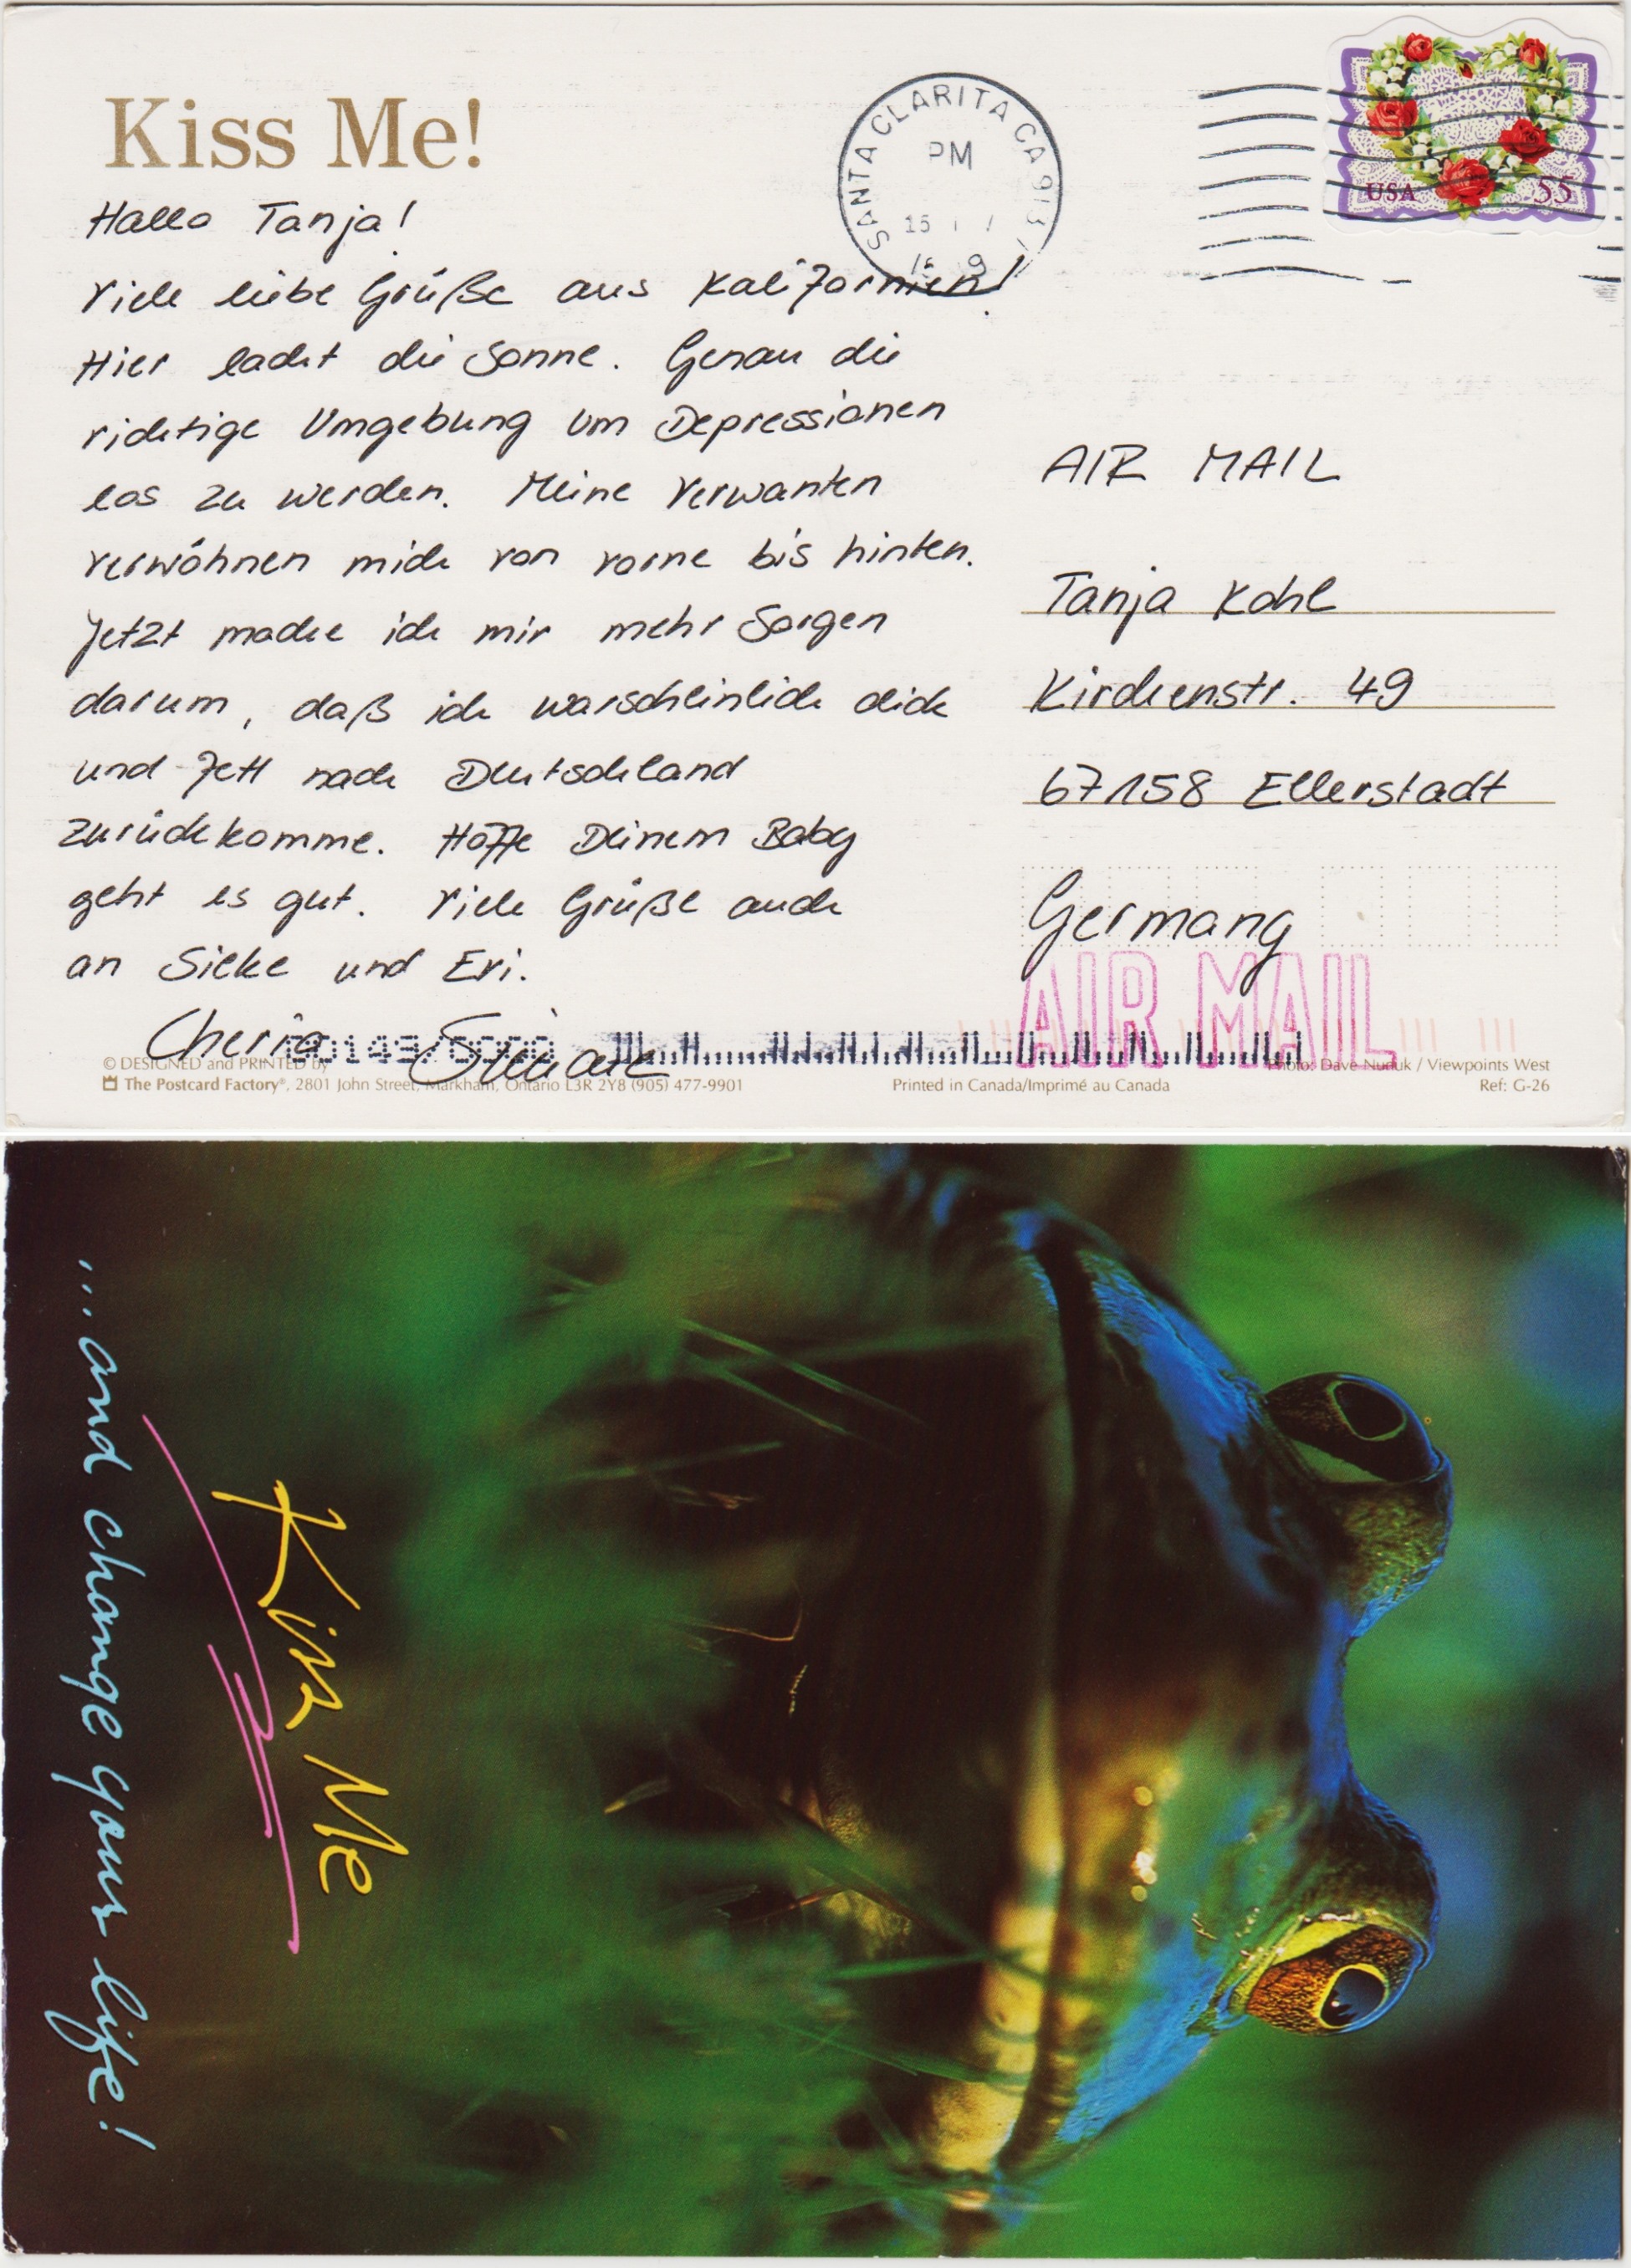 Kiss Me!
SANTA CLARITA CA 913
PM
15
USA 55
Hallo Tanja!
Viele liebe Grüße aus Kalifornien!
Hier lacht die Sonne. Genau die
richtige Umgebung um Depressionen
los zu werden. Meine Verwanten
verwöhnen mich von vorne bis hinten.
Jetzt mache ich mir mehr Sorgen
darum, daß ich warscheinlich dick
und fett nach Deutschland
zurückkomme. Hoffe Deinem Baby
geht es gut. Viele Grüße auch
an Silke und Evi.
AIR MAIL
Tanja Kohl
Kirchenstr. 49
67158 Ellerstadt
Germany
AIR MAIL
© DESIGNED and PRINTED by
The Postcard Factory®, 2801 John Street, Markham, Ontario L3R 2Y8 (905) 477-9901
Printed in Canada/Imprimé au Canada
Photo: Dave Nunuk / Viewpoints West
Ref: G-26
Kiss Me
...and change your life!